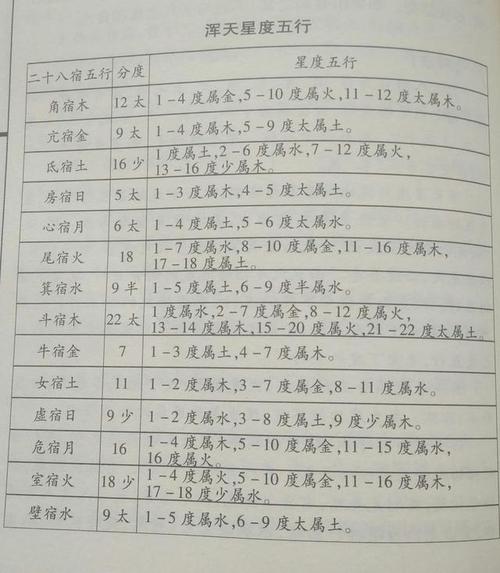 浑天星度五行
二十八宿五行 分度 星度五行
角宿木 12 太 1-4 度属金,5-10 度属火,11-12 度太属木。
亢宿金 9 太 1-4 度属木,5-9 度太属土。
氐宿土 16 少 1 度属土,2-6 度属水,7-12 度属火,
13-16 度少属木。
房宿日 5 太 1-3 度属木,4-5 度太属土。
心宿月 6 太 1-4 度属土,5-6 度太属水。
尾宿火 18 1-7 度属水,8-10 度属金,11-16 度属木,
17-18 度属土。
箕宿水 9 半 1-5 度属土,6-9 度半属水。
斗宿木 22 太 1 度属水,2-7 度属金,8-12 度属火,
13-14 度属木,15-20 度属火,21-22 度太属土。
牛宿金 7 1-3 度属土,4-7 度属木。
女宿土 11 1-2 度属木,3-7 度属金,8-11 度属水。
虚宿日 9 少 1-2 度属水,3-8 度属土,9 度少属木。
危宿月 16 1-4 度属木,5-10 度属金,11-15 度属水,
16 度属火。
室宿火 18 少 1-4 度属火,5-10 度属金,11-16 度属木,
17-18 度少属水。
壁宿水 9 太 1-5 度属水,6-9 度太属土。